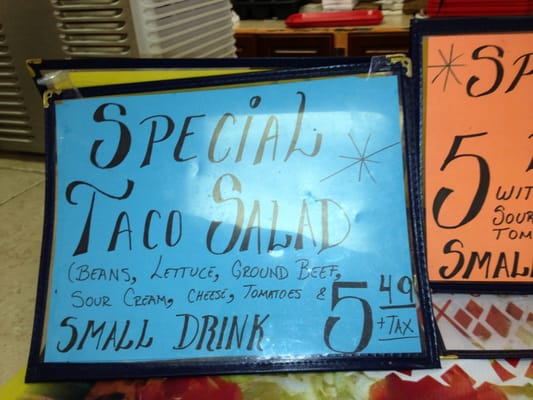 Special
Taco Salad
(Beans, Lettuce, Ground Beef,
Sour Cream, Cheese, Tomatoes &
Small Drink
5 49
+ Tax
5
Wit
Sour
Tom
Small